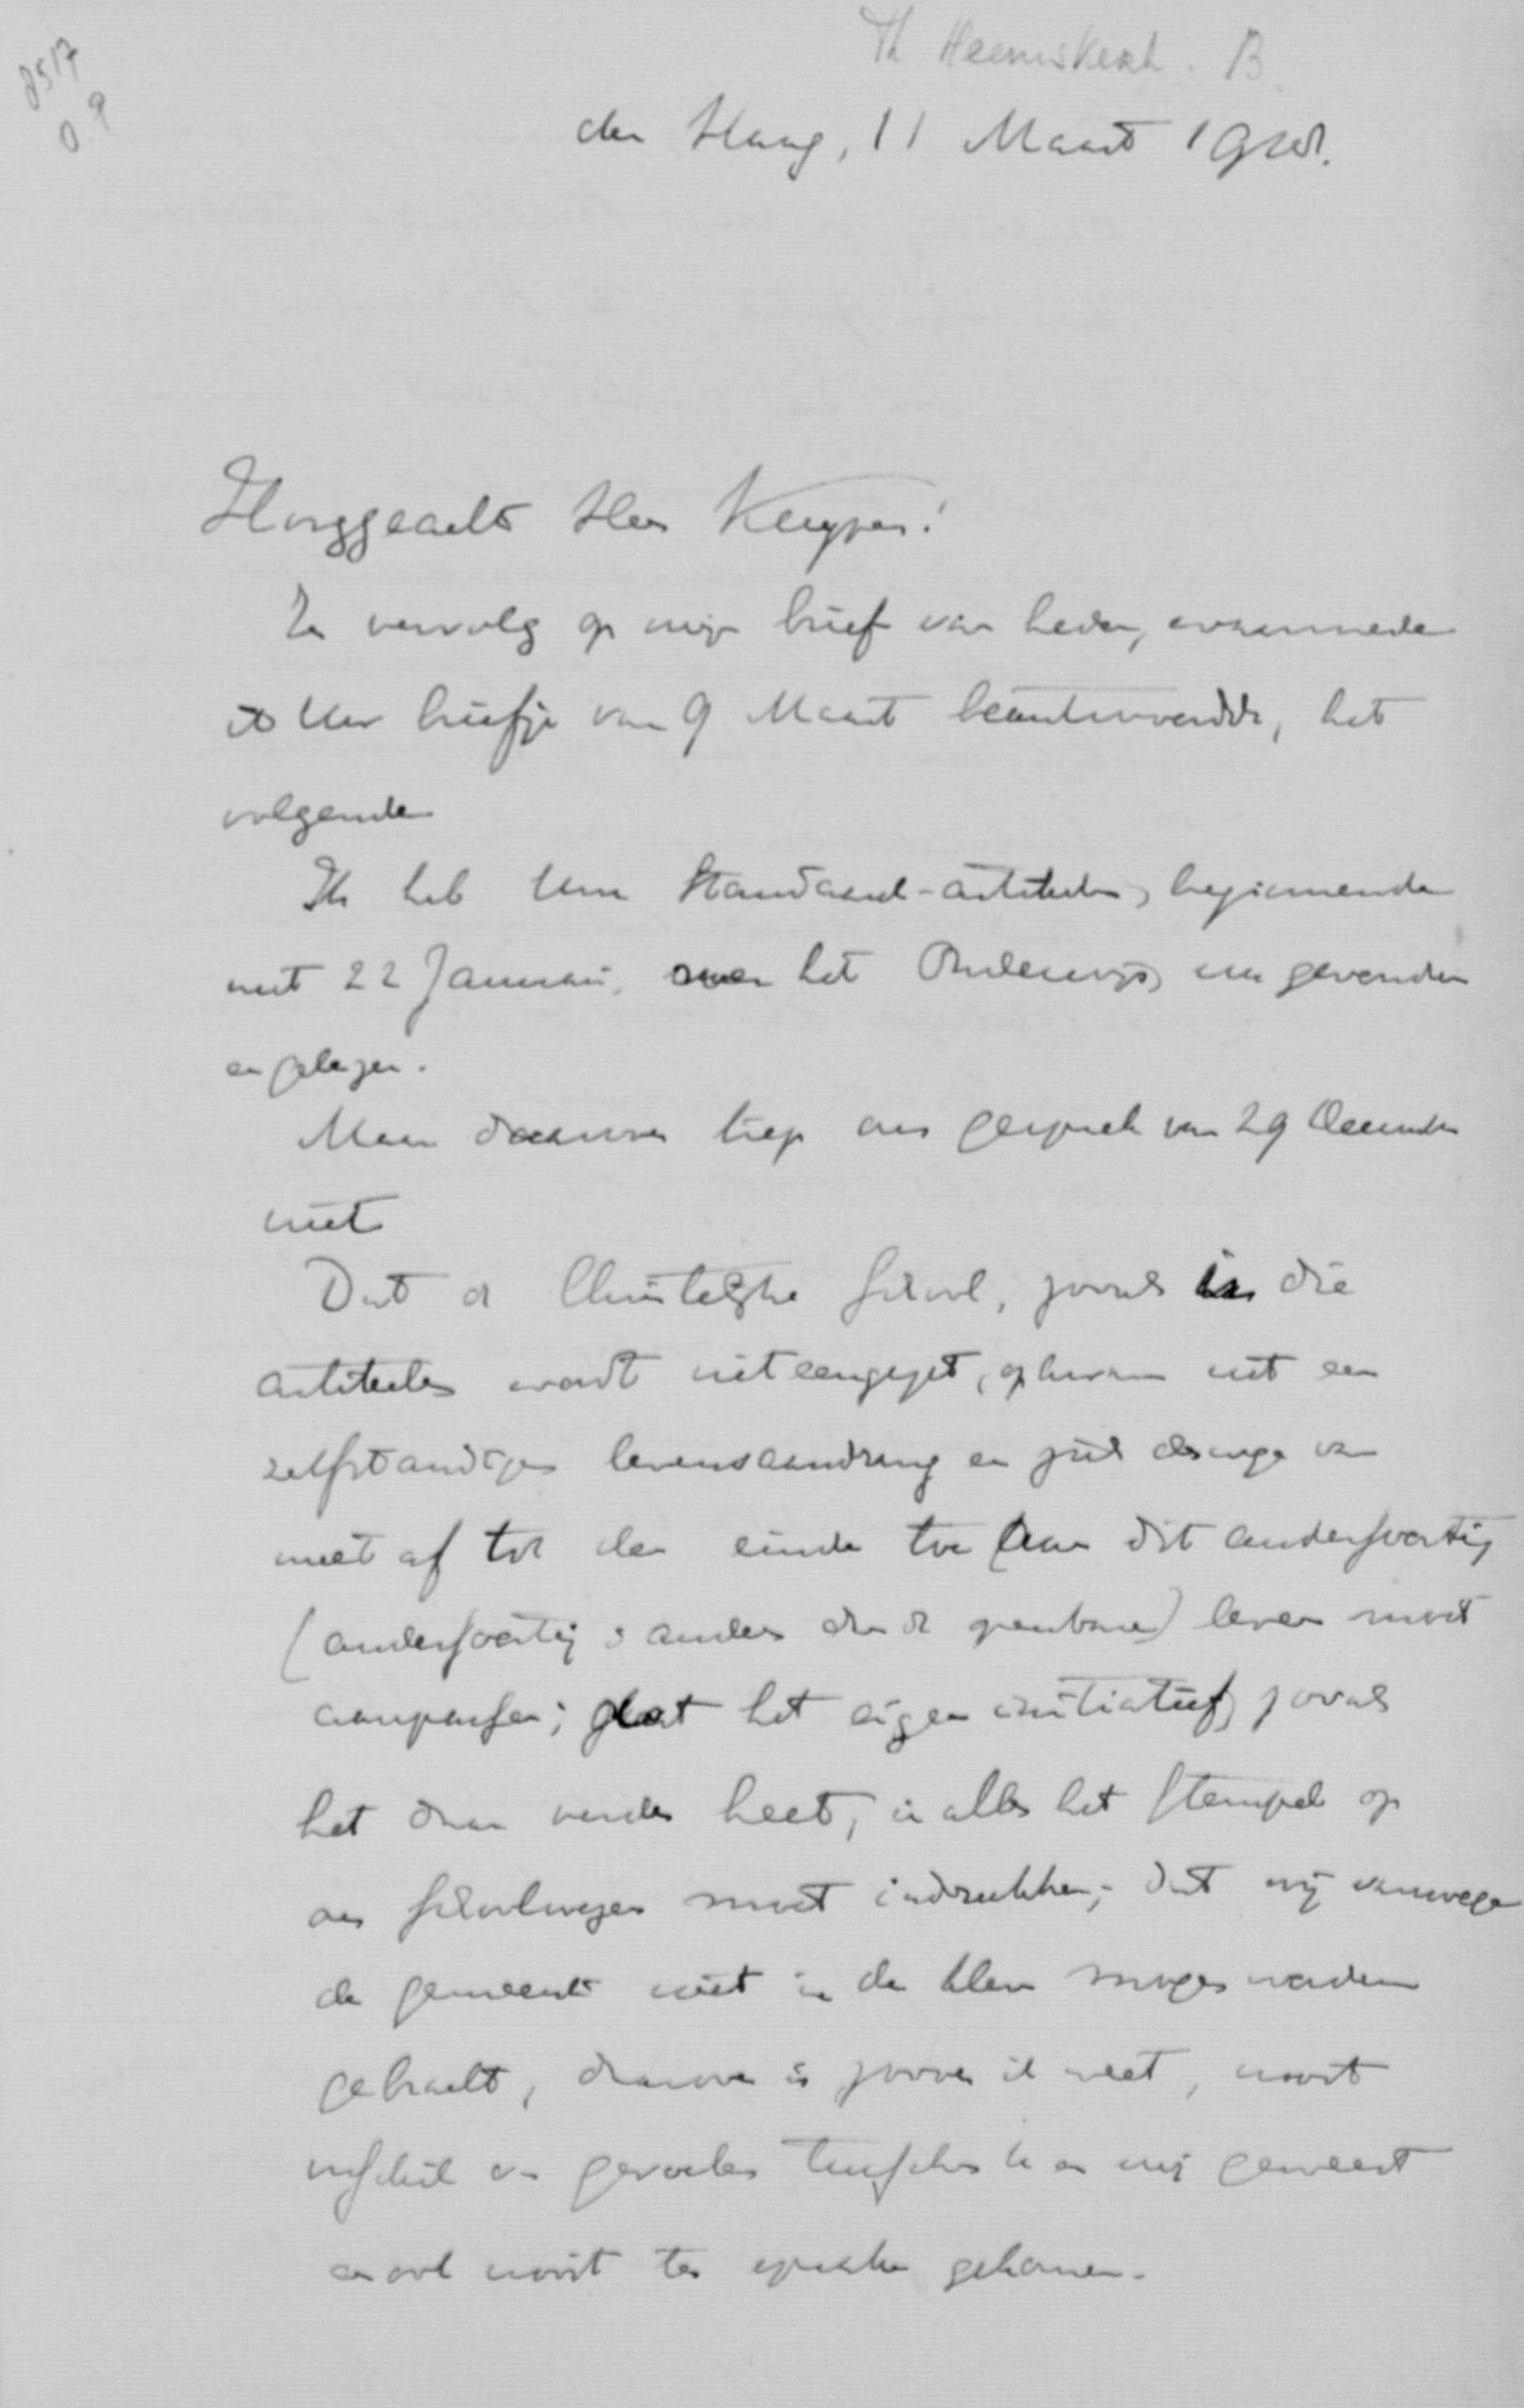 8517
Th Heemskerk. B.
den Haag, 11 Maart 19
Hooggeachte Heer Kuyper!
In vervolg op mijn brief van heden, waarmede
ik Uw briefje van 9 Maart beantwoordde, het
volgende
Ik heb Uw Standaard-artikelen, beginnende
met 22 Januari, over het Onderwijs, nu gevonden
en gelezen.
Maar daarover liep ons gesprek van 29 December
niet
Dat de Christelijke school, zooals in die
artikelen wordt uiteengezet, opkwam uit een
zelfstandigen levensaandrang en zich van
meet af tot den einde toe aan dit andersoortig
(andersoortig = anders dan de openbare) leven moet
aanpassen; dat het eigen initiatief, zooals
het dan verder heet, in alles het stempel op
ons schoolwezen moet indrukken; dat wij vanwege
de gemeente niet in de klem mogen worden
gebracht, daarover is zoover ik weet, nooit
verschil van gevoelen tusschen U en mij geweest
en ook nooit ter sprake gekomen.